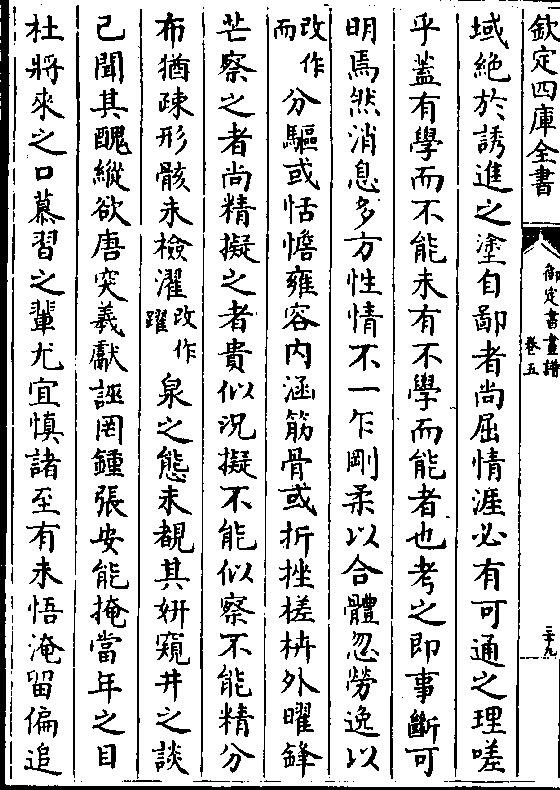 欽定四庫全書
御定書畫譜
卷五
三十九
域絶於誘進之塗自鄙者尚屈情涯必有可通之理嗟
乎蓋有學而不能未有不學而能者也考之即事斷可
明焉然消息多方性情不一乍剛柔以合體忽勞逸以
改作而分驅或恬憺雍容内涵筋骨或折挫槎枿外曜鋒
芒察之者尚精擬之者貴似況擬不能似察不能精分
布猶疎形骸未檢濯改作躍泉之態未覩其妍窺井之談
已聞其醜縱欲唐突羲獻誣罔鍾張安能掩當年之目
杜將來之口慕習之輩尤宜慎諸至有未悟淹留偏追